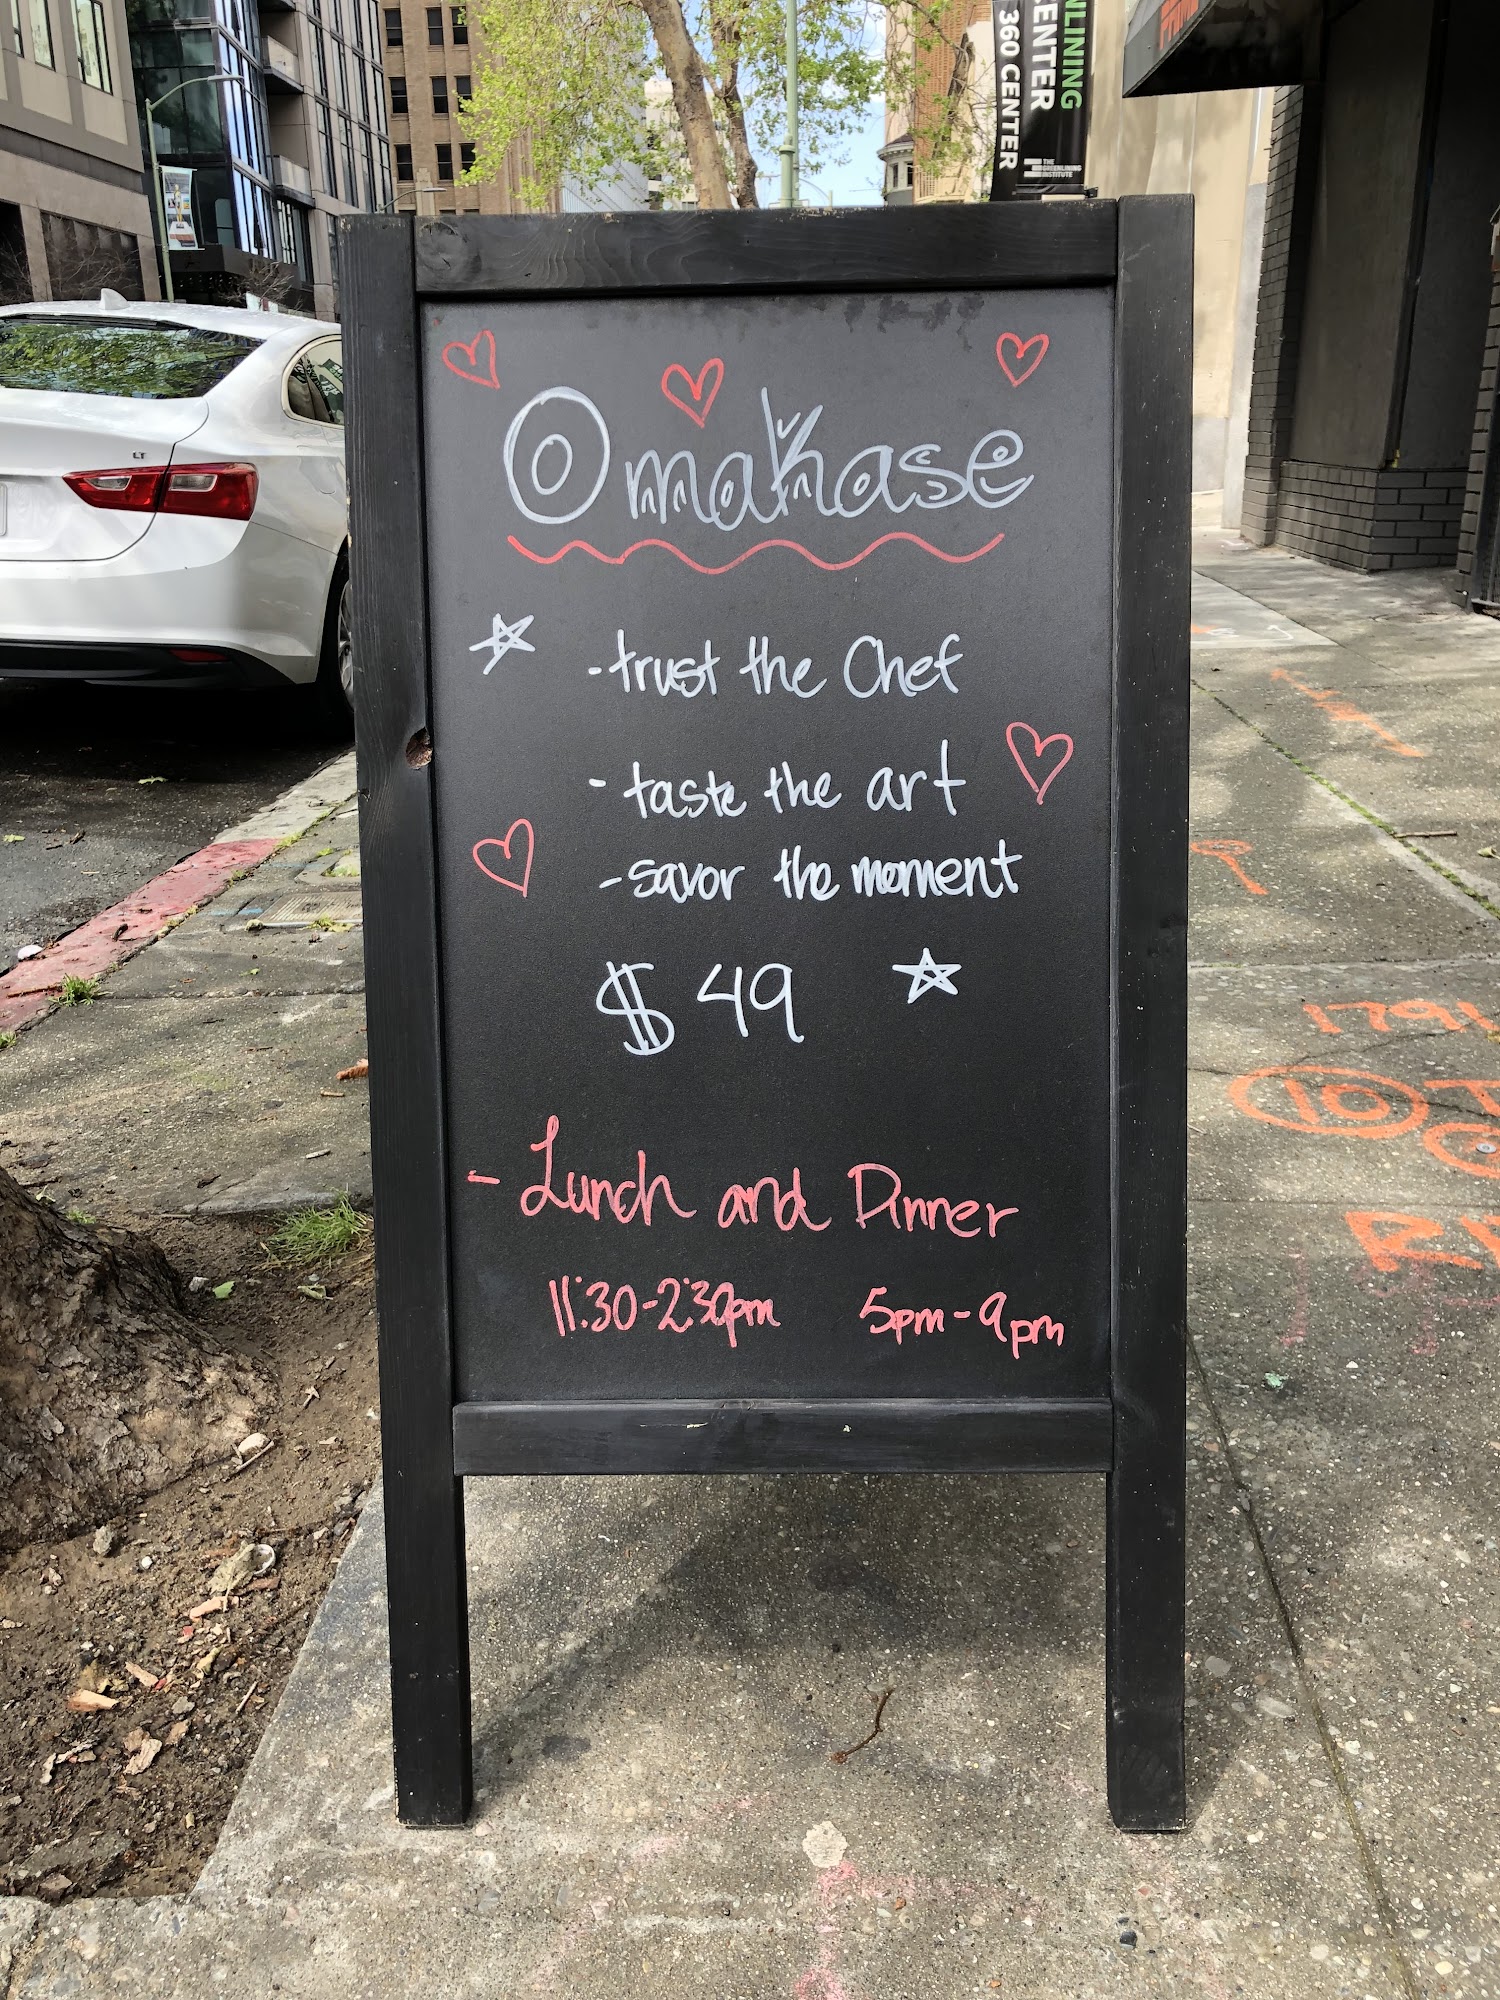 NLINING
ENTER
360 CENTER
THE
GREENLINING
INSTITUTE
LT
Omakase
- trust the Chef
- taste the art
- savor the moment
$ 49
- Lunch and Dinner
11:30-2:30pm 5pm-9pm
1791
10